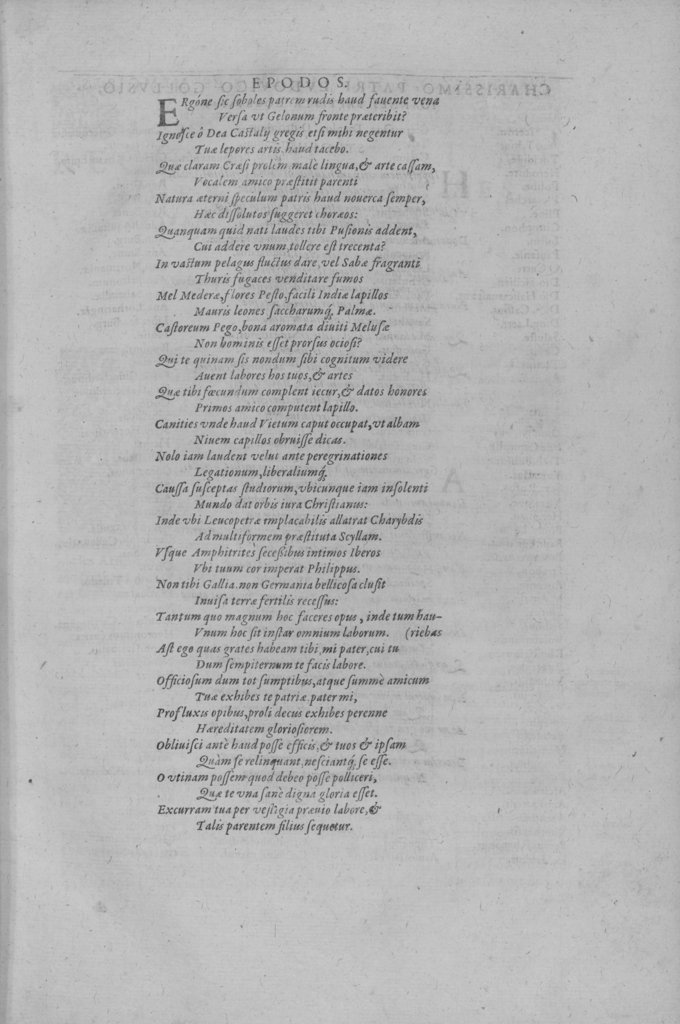 EPODOS.
ERgóne sic soboles patrem rudis haud fauente vena
Versa vt Gelonum fronte præteribit?
Ignosce ô Dea Castalij gregis etsi mihi negentur
Tuæ lepores artis haud tacebo.
Quæ claram Cræsi prolem malè lingua, & arte cassam,
Vocalem amico præstitit parenti
Natura æterni speculum patris haud nouerca semper,
Hæc dissolutos suggeret choræos:
Quanquam quid nati laudes tibi Pusionis addent,
Cui addere vnum, tollere est trecenta?
In vastum pelagus fluctus dare, vel Sabæ fragranti
Thuris fugaces venditare fumos
Mel Mederæ, flores Pesto, facili Indiæ lapillos
Mauris leones saccharumq́, Palmæ.
Castoreum Pego, bona aromata diuiti Melusæ
Non hominis esset prorsus ociosi?
Qui te quinam sis nondum sibi cognitum videre
Auent labores hos tuos, & artes
Quæ tibi fœcundum complent iecur, & datos honores
Primos amico computent lapillo.
Canities vnde haud Vietum caput occupat, vt albam
Niuem capillos obruisse dicas.
Nolo iam laudent velut ante peregrinationes
Legationum, liberaliumq́,
Caussa susceptas studiorum, vbicunque iam insolenti
Mundo dat orbis iura Christianus:
Inde vbi Leucopetræ implacabilis allatrat Charybdis
Ad multiformem præstituta Scyllam.
Vsque Amphitrites secessibus intimos Iberos
Vbi tuum cor imperat Philippus.
Non tibi Gallia, non Germania bellicosa clusit
Inuisa terræ fertilis recessus:
Tantum quo magnum hoc faceres opus, inde tum hau-
Vnum hoc sit instar omnium laborum. (riebas
Ast ego quas grates habeam tibi, mi pater, cui tu
Dum sempiternum te facis labore.
Officiosum dum tot sumptibus, atque summè amicum
Tuæ exhibes te patriæ, pater mi,
Profluxis opibus, proli decus exhibes perenne
Hæreditatem gloriosiorem.
Obliuisci antè haud posse efficis, & tuos & ipsam
Quàm se relinquant, nesciantq́, se esse.
O vtinam possem quod debeo posse polliceri,
Quæ te vna sanè digna gloria esset.
Excurram tua per vestigia præuio labore, &
Talis parentem filius sequetur.